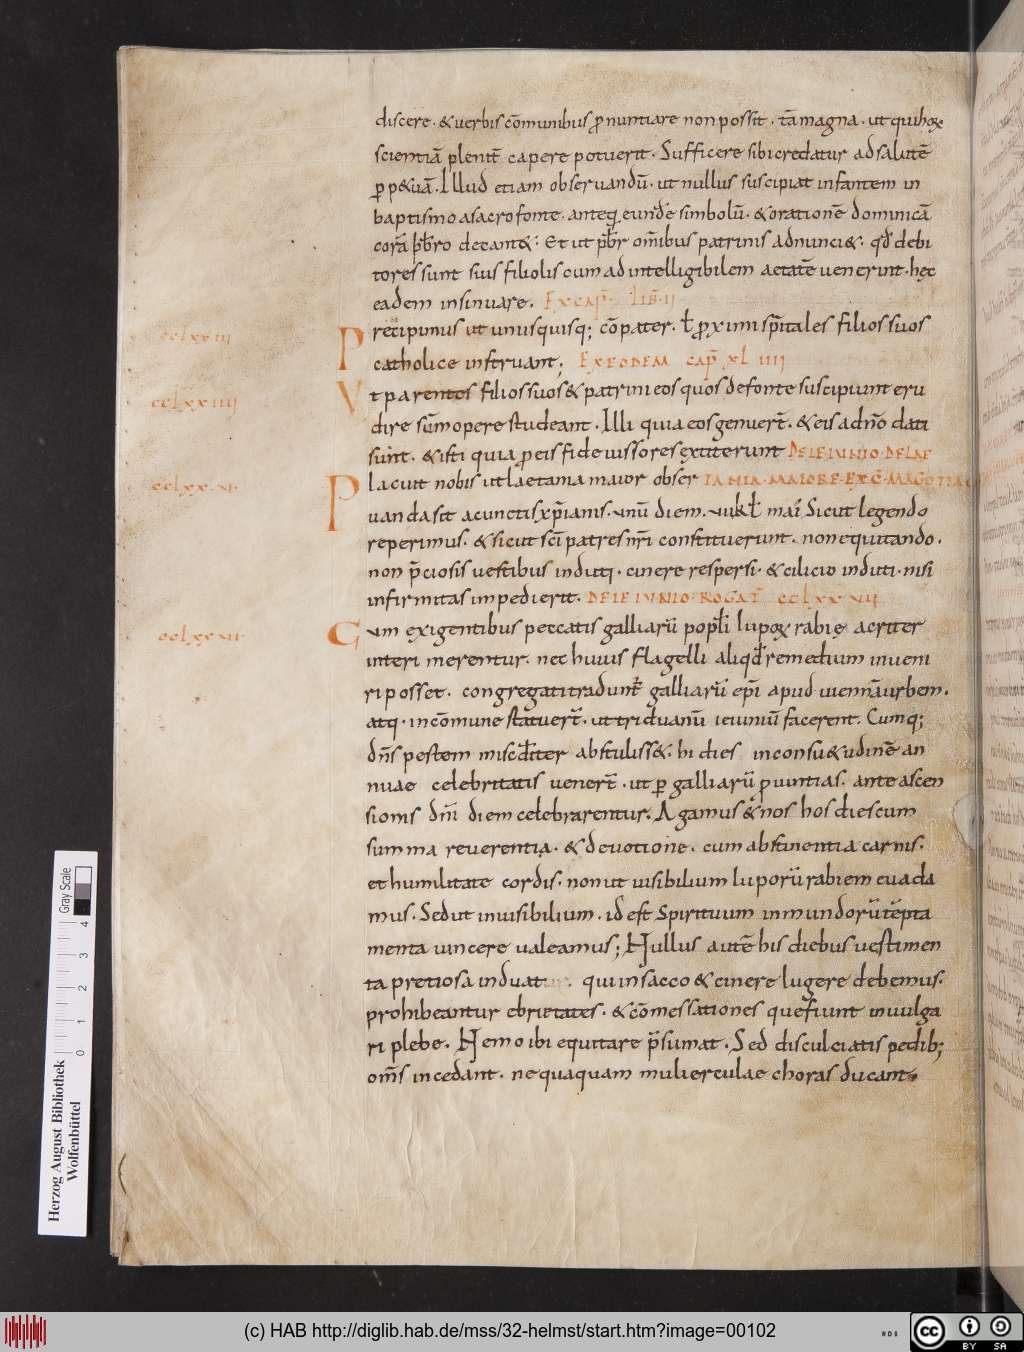 discere · & uerbis cōmunibus ꝓnuntiare non possit · tā magna · ut qui hoꝝ
scientiā plenit̄ capere potuerit · Sufficere sibi credatur ad salutē
ꝑp&uā · Illud etiam obseruandū · ut nullus suscipiat infantem in
baptismo a sacro fonte · anteq eundē simbolū · & orationē dominicā
corā p̄b̄ro decant& · Et ut p̄b̄r om̄ibus patrinis adnunci& · qđ debi
tores sunt suis filiolis cum ad intelligibilem aetatē uenerint · hęc
eadem insinuare . Ex cap̄ · Lib̄ · II
CCLXXIII
Precipimus ut unusquisq; cōpater · ł ꝓximi sp̄itales filios suos
catholice instruant; EX EODEM CAP̄ XL IIII
CCLXXIIII
Vt parentes filios suos & patrini eos quos de fonte suscipiunt eru
dire sūmopere studeant · Illi quia eos genuer̄ · & eis a dn̄o dati
sunt · & isti quia ꝓ eis fideiussores extiterunt DE IEIVNIO · DE LAE
TANIA · MAIORE · EX C̄ · MAGOTIA
CCLXX · VI ·
Placuit nobis ut laetania maior obser
uanda sit a cunctis xp̄ianis · unū diem · vii kł mai Sicut legendo
reperimus · & sicut sc̄i patres nr̄i constituerunt · non equitando ·
non p̄ciosis uestibus induti · cinere respersi · & cilicio induti · nisi
infirmitas impedierit · DE IEIVNIO · ROGAT̄ CCLXXVII
CCLXXVII
Cum exigentibus peccatis galliarū popłi lupoꝝ rabie acriter
interimerentur · nec huius flagelli aliqđ remedium inueni
ri posset · congregati tradunt̄ galliarū ep̄i apud uiennā urbem ·
atq · in cōmune statuer̄t · ut triduanū ieiuniū facerent . Cumq;
dn̄s pestem miscđiter abstuliss& · hi dies in consu&udinē an
nuae celebritatis uener̄t · ut ꝑ galliarū ꝓuintias · ante ascen
sionis dn̄i diem celebrarentur . Agamus & nos hos dies cum
summa reuerentia · & deuotione · cum abstinentia carnis ·
et humilitate cordis · non ut uisibilium luporū rabiem euada
mus · Sed ut inuisibilium · id est spirituum inmundorū tēpta
menta uincere ualeamus; Nullus autē his diebus uestimen
ta pretiosa induatur · qui in sacco & cinere lugere debemus ·
prohibeantur ebrietates · & cōmessationes que fiunt in uulga
ri plebe . Nemo ibi equitare p̄sumat . Sed disculciatis pedib;
om̄s incedant · nequaquam mulierculae choras ducant
Gray Scale
0 1 2 3 4
Herzog August Bibliothek
Wolfenbüttel
(c) HAB http://diglib.hab.de/mss/32-helmst/start.htm?image=00102
cc BY SA